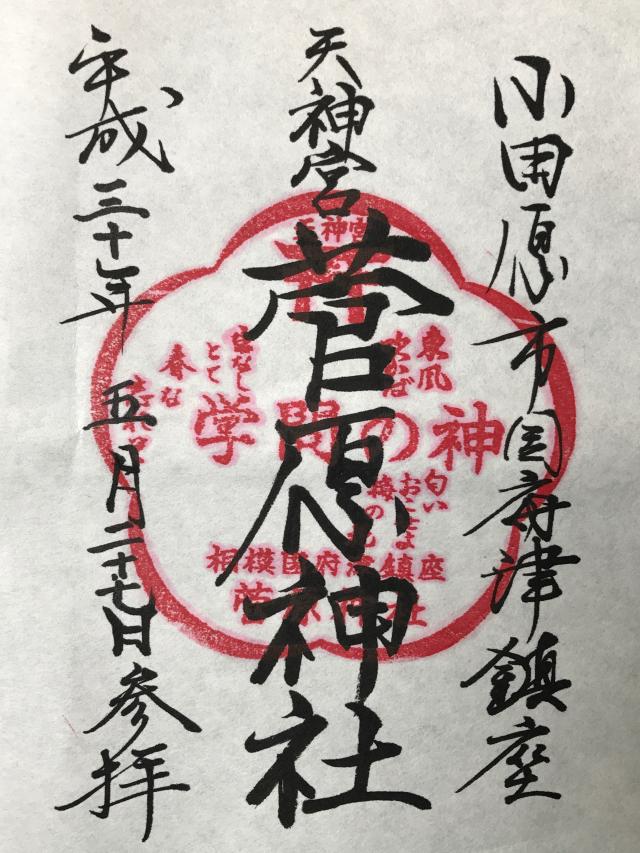 小田原市国府津鎮座
天神宮
菅原神社
平成三十年 五月二十七日 参拝
東風
吹かば
匂い
おこせよ
梅の
なしとて
春な
学問の神
相模国府津鎮座